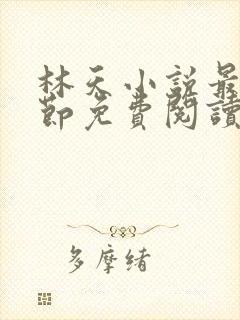 林天小說最
節免費閱讀
多摩緒